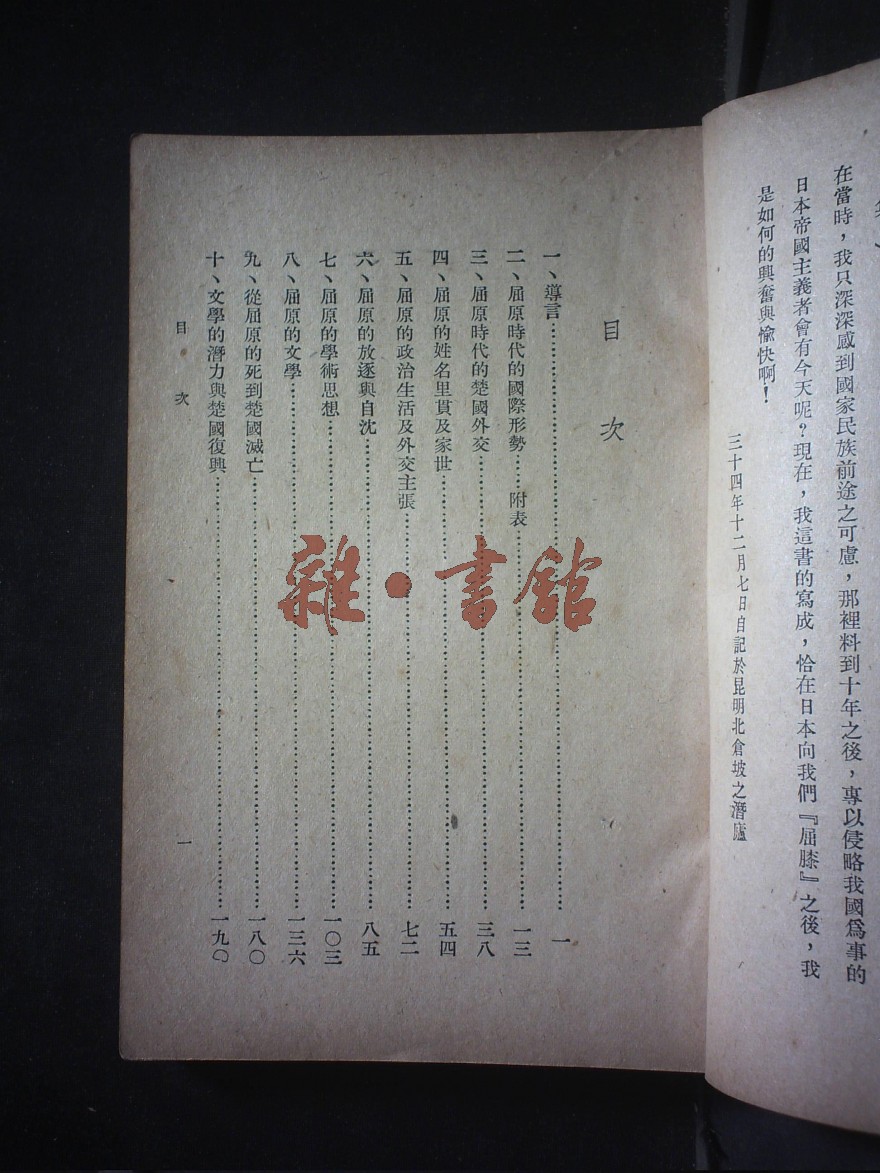 在當時，我只深深感到國家民族前途之可慮，那裡料到十年之後，專以侵略我國爲事的
日本帝國主義者會有今天呢？現在，我這書的寫成，恰在日本向我們『屈膝』之後，我
是如何的興奮與愉快啊！
三十四年十二月七日自記於昆明北倉坡之潛廬
目次
一、導言……一
二、屈原時代的國際形勢……附表……一三
三、屈原時代的楚國外交……三八
四、屈原的姓名里貫及家世……五四
五、屈原的政治生活及外交主張……七二
六、屈原的放逐與自沈……八五
七、屈原的學術思想……一〇三
八、屈原的文學……一三六
九、從屈原的死到楚國滅亡……一八〇
十、文學的潛力與楚國復興……一九〇
目次
一
雜·書館